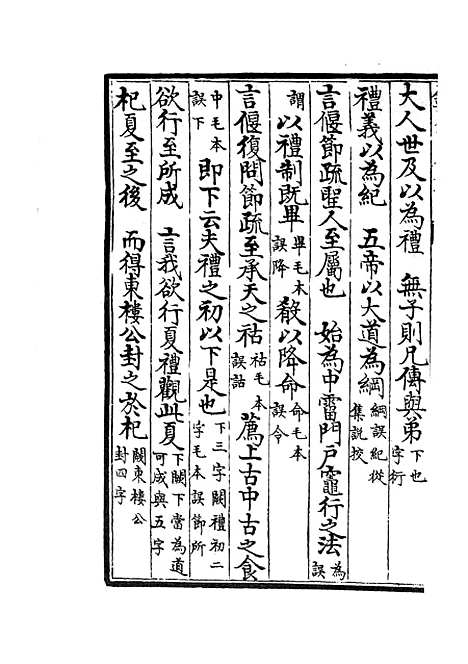 大人世及以為禮　無子則兄傳與弟下也字衍
禮義以為紀　五帝以大道為綱綱誤紀從集說挍
言偃節疏聖人至屬也　始為中霤門戶竈行之法為誤
謂　以禮制既畢畢毛本誤降　殽以降命命毛本誤令
言偃復問節疏至承天之祜祜毛本誤詁　薦上古中古之食
中毛本誤下　即下云夫禮之初以下是也下三字闕禮初二字毛本誤節所
欲行至所成　言我欲行夏禮觀此夏下闕下當為道可成與五字
杞夏至之後　而得東樓公封之於杞闕東樓公封四字